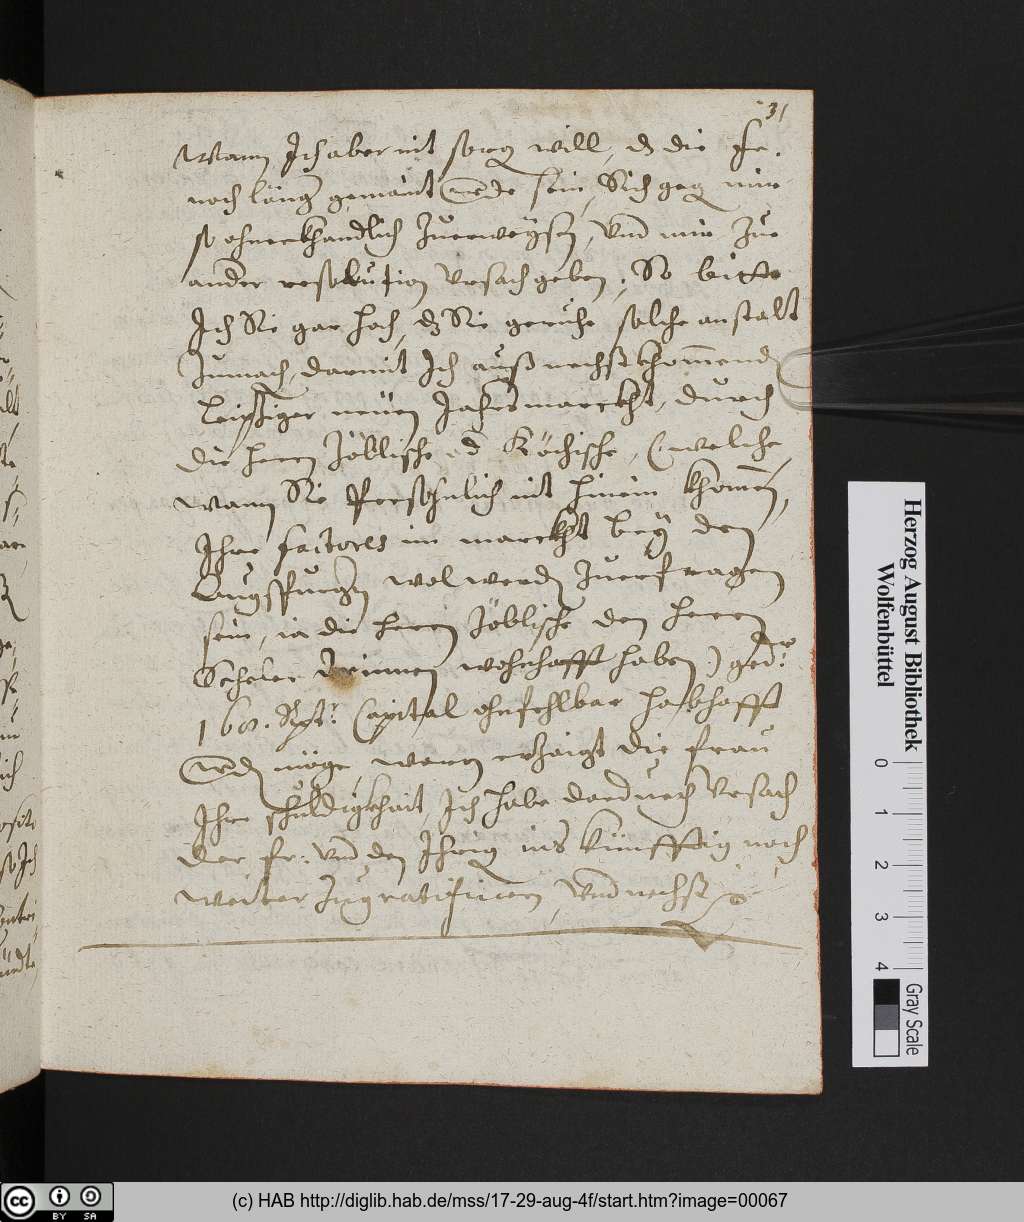 31
Wann Ich aber nit sorg will, dz die fr.
noch länger gemaint werde sein, Sich geg mir
so ohnerkhandlich Zuerweysen, Vnd mir Zue
ander resolution Vrsach geben, So bitte
Ich Sie gar hoch, dz Sie geruhe solche anstalt
Zumach, darmit Ich auß nechstkhommend
Leipziger neuen Jahrsmarckht, durch
die herrn Jöblische od Köchische, (welche
wann Sie Persöhnlich nit hinein khomen,
Ihre factores im marckht bey den
Augspurg wol werden Zuerfragen
sein, ia die herrn Jöblische den herrn
Scheler drinnen wohnhafft haben) ged:
160. Rpt: Capital ohnfehlbar habhafft
werd möge, wann erzaigt die frau
Ihre schuldigkhait, Ich habe dardurch Vrsach
der fr: Vnd den Ihrig ins künfftig noch
weiter Zugratificirn, Vnd nechst
Herzog August Bibliothek
Wolfenbüttel
0 1 2 3 4
Gray Scale
cc BY SA
(c) HAB http://diglib.hab.de/mss/17-29-aug-4f/start.htm?image=00067